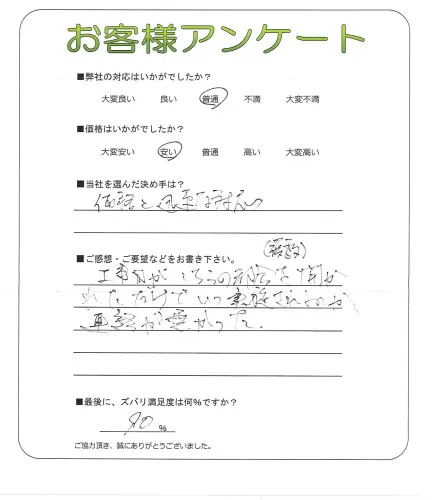 お客様アンケート
■弊社の対応はいかがでしたか？
大変良い 良い 普通 不満 大変不満
■価格はいかがでしたか？
大変安い 安い 普通 高い 大変高い
■当社を選んだ決め手は？
価格と迅速な対応
■ご感想・ご要望などをお書き下さい。
工事日が こちらの
れただけで いつ
連絡が悪かった.
■最後に、ズバリ満足度は何%ですか？
90 %
ご協力頂き、誠にありがとうございました。